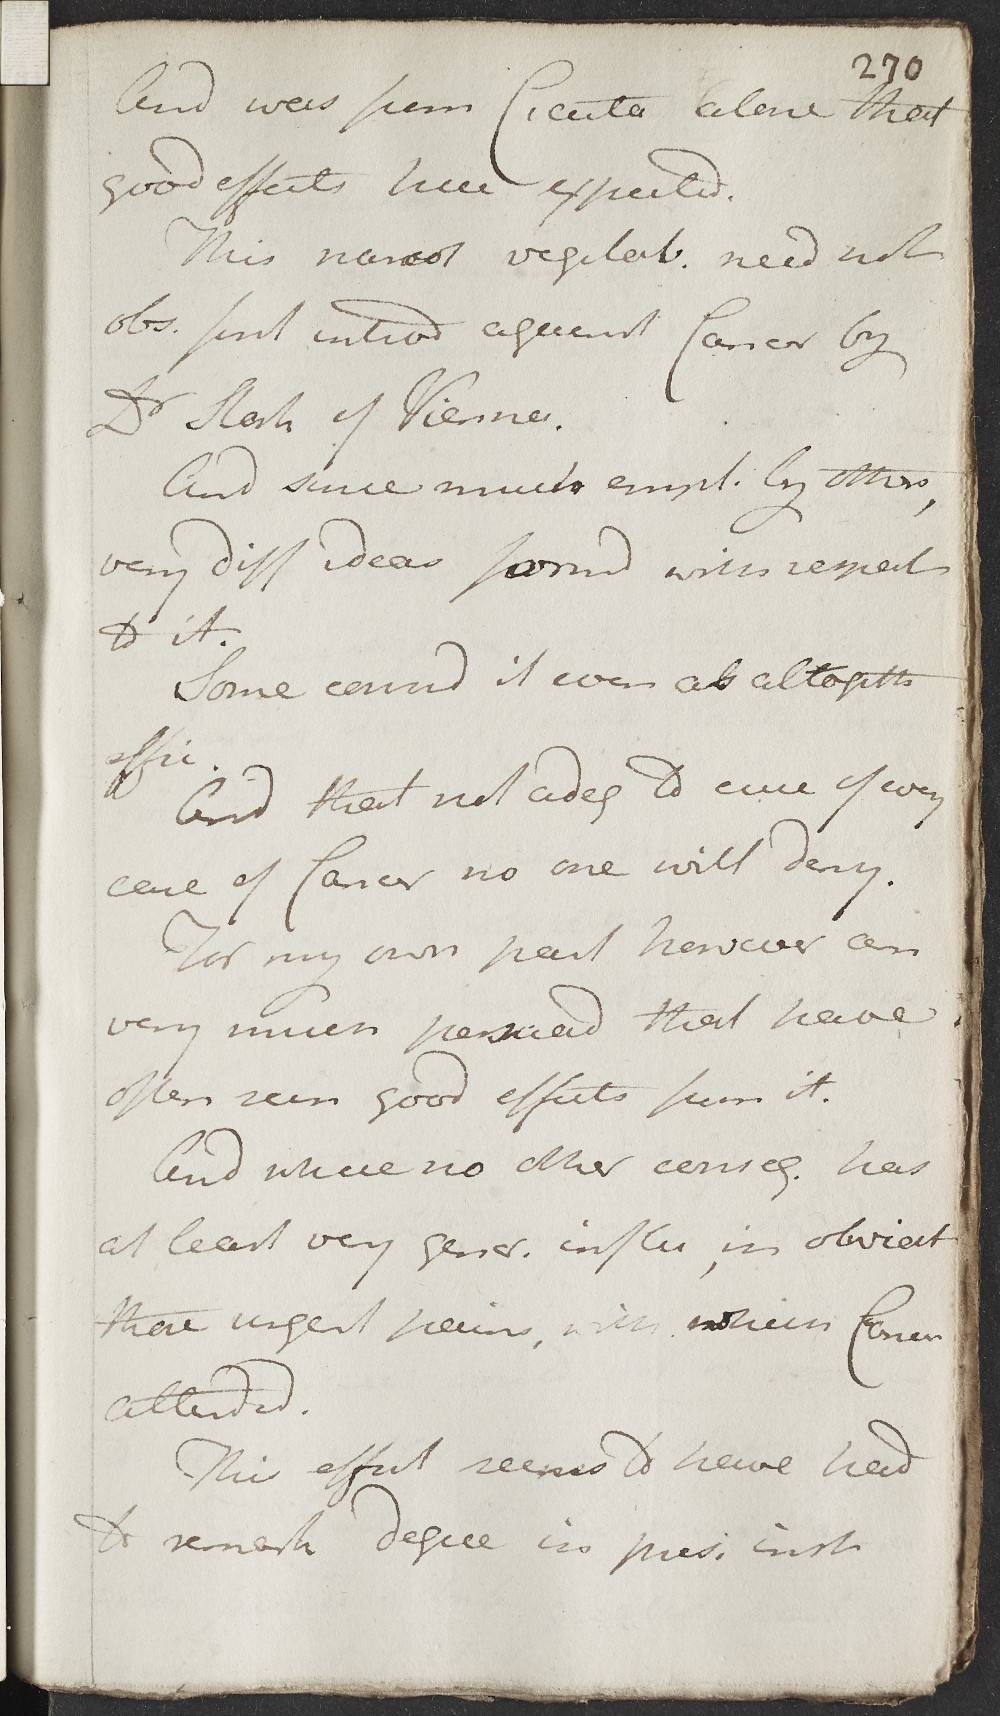 270
And was from Cicuta alone that
good effects here expected.
This narcot vegetab. need not
obs. first introd against Cancer by
Dr Stork of Vienna.
And since much empl. by others,
very diff ideas formd with respect
to it.
Some consid it even as altogeth
effic.
And that not adeq to cure of every
case of Cancer no one will deny.
For my own part however am
very much persuad that have
often seen good effects from it.
And where no other conseq. has
at least very gener. influ, in obviat
those urgent pains, with which Cancer
attended.
This effect seems to have had
to remark degree in pres. inst